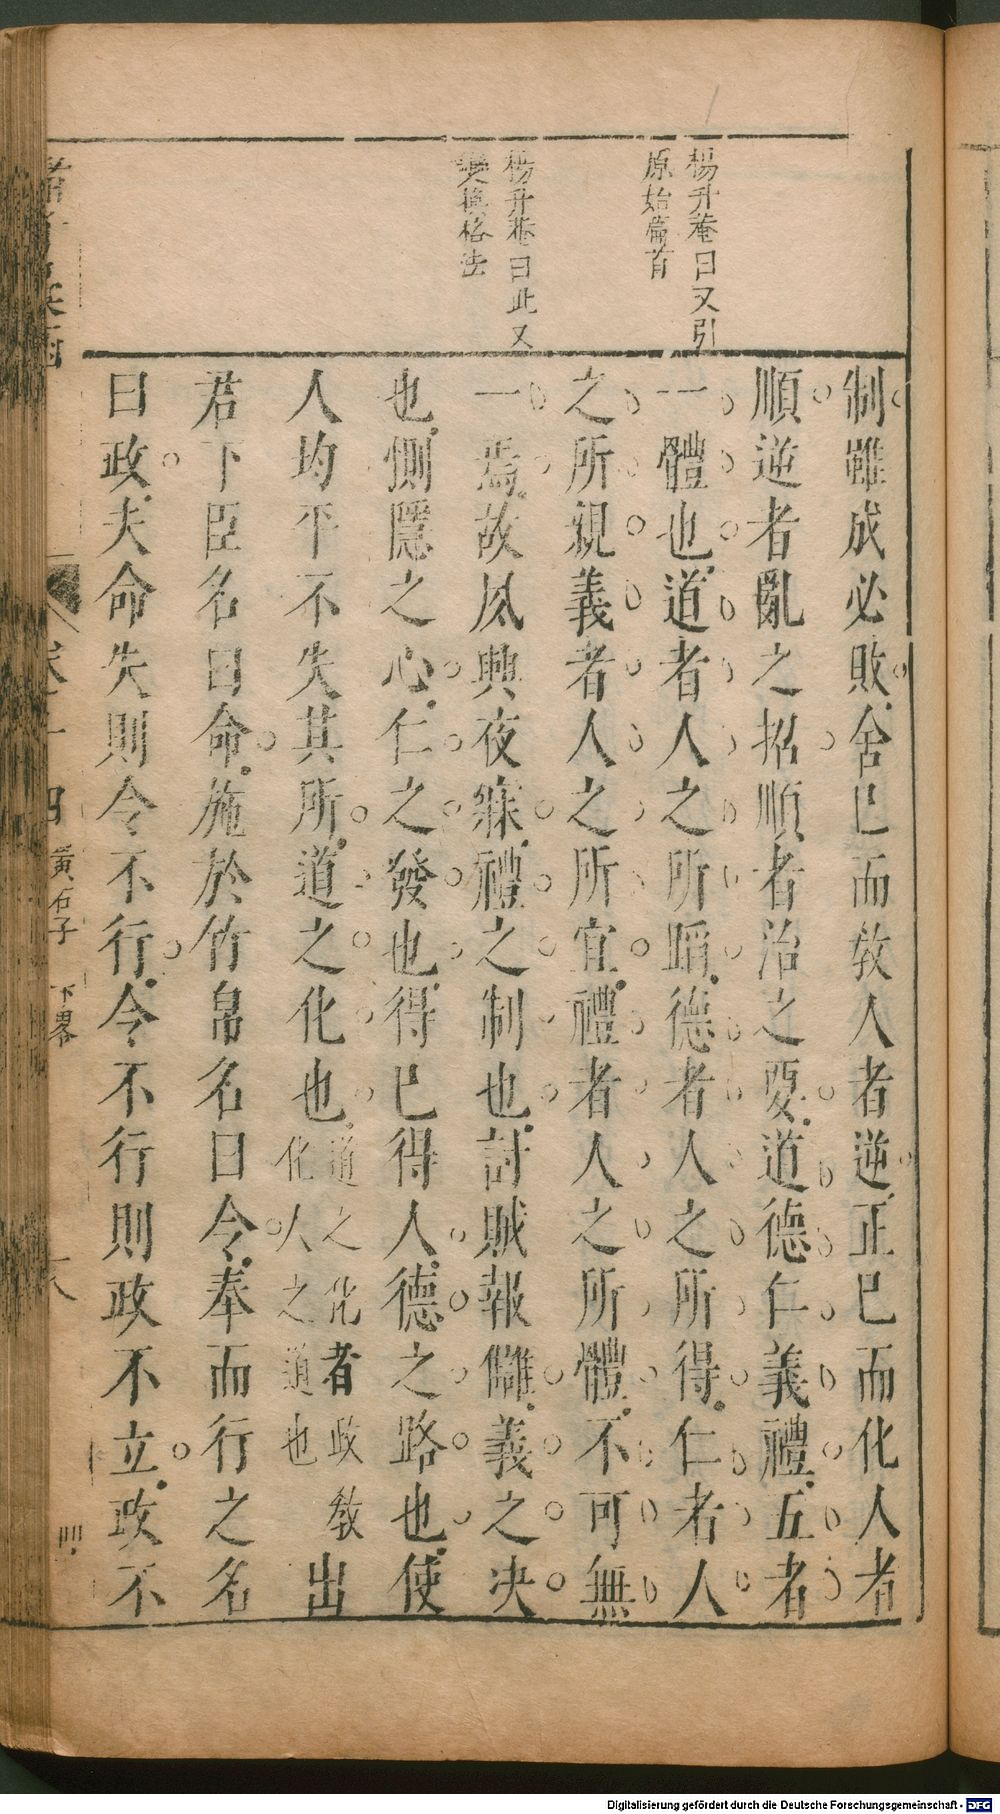 楊升菴曰又引
原始篇首
楊升菴曰此又
變換格法
制雖成必敗舍已而敎人者逆正已而化人者
順逆者亂之招順者治之要道德仁義禮五者
一體也道者人之所蹈德者人之所得仁者人
之所親義者人之所宜禮者人之所體不可無
一焉故夙興夜寐禮之制也討賊報讎義之决
也惻隱之心仁之發也得已得人德之路也使
人均平不失其所道之化也道之化者政敎
化人之道也出
君下臣名曰命施於竹帛名曰令奉而行之名
曰政夫命失則令不行令不行則政不立政不
黃石子 下畧
Digitalisierung gefördert durch die Deutsche Forschungsgemeinschaft - DFG